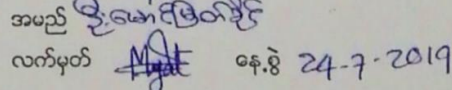 အမည် ဦးမောင်မြတ်ခိုင်
လက်မှတ် နေ့စွဲ 24-7-2019